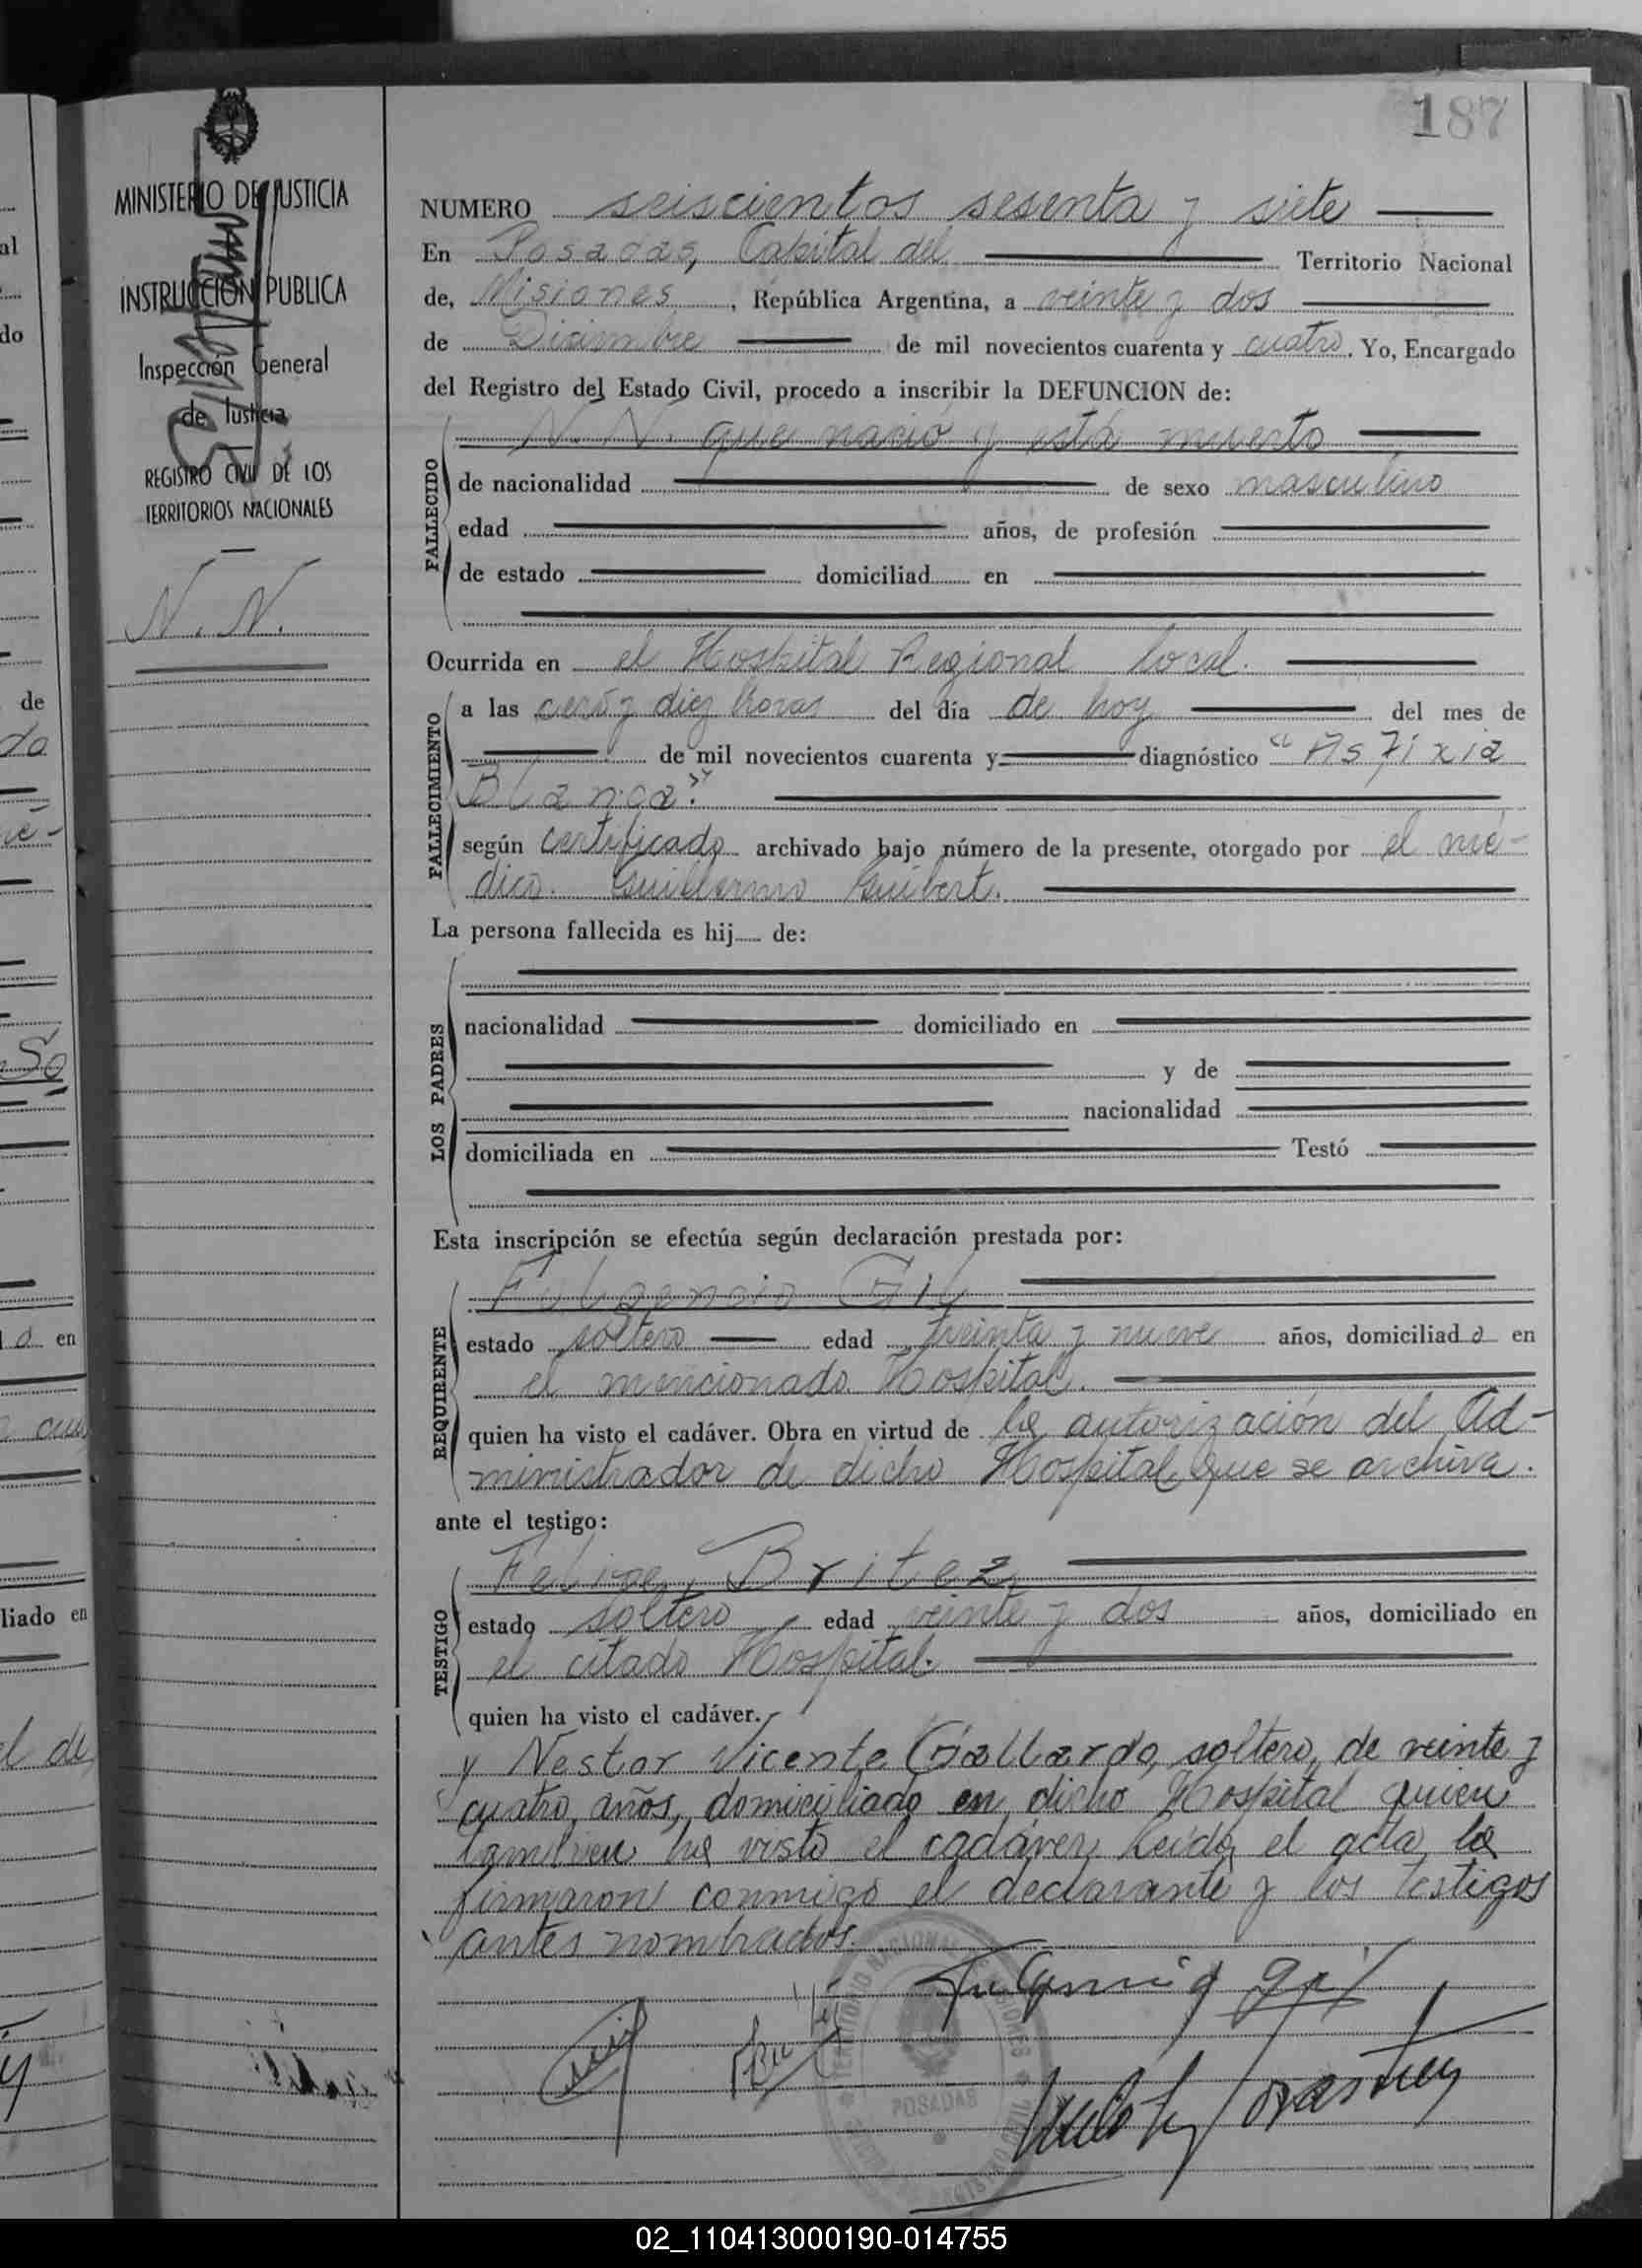 187
MINISTERIO DE JUSTICIA
INSTRUCCION PUBLICA
Inspección General
de Justicia
REGISTRO CIVIL DE LOS
TERRITORIOS NACIONALES
N. N.
NUMERO seiscientos sesenta y siete
En Posadas, Capital del Territorio Nacional
de, Misiones, República Argentina, a veinte y dos
de Diciembre de mil novecientos cuarenta y cuatro. Yo, Encargado
del Registro del Estado Civil, procedo a inscribir la DEFUNCION de:
FALLECIDO
N. N. que nació y está muerto
de nacionalidad de sexo masculino
edad años, de profesión
de estado domiciliad en
Ocurrida en el Hospital Regional local.
FALLECIMIENTO
a las cero y diez horas del día de hoy del mes de
de mil novecientos cuarenta y diagnóstico "Asfixia
Blanca".
según certificado archivado bajo número de la presente, otorgado por el mé-
dico Guillermo Guibert.
La persona fallecida es hij de:
LOS PADRES
nacionalidad domiciliado en
y de
nacionalidad
domiciliada en Testó
Esta inscripción se efectúa según declaración prestada por:
REQUIRENTE
Fulgencio Gil
estado soltero edad treinta y nueve años, domiciliado en
el mencionado Hospital.
quien ha visto el cadáver. Obra en virtud de la autorización del Ad-
ministrador de dicho Hospital que se archiva.
ante el testigo:
TESTIGO
Felipe Britez
estado soltero edad veinte y dos años, domiciliado en
el citado Hospital.
quien ha visto el cadáver.
y Nestor Vicente Gallardo, soltero, de veinte y
cuatro años, domiciliado en dicho Hospital quien
tambien ha visto el cadáver. Leída el acta, la
firmaron conmigo el declarante y los testigos
antes nombrados.
Fulgencio Gil
POSADAS
02_110413000190-014755